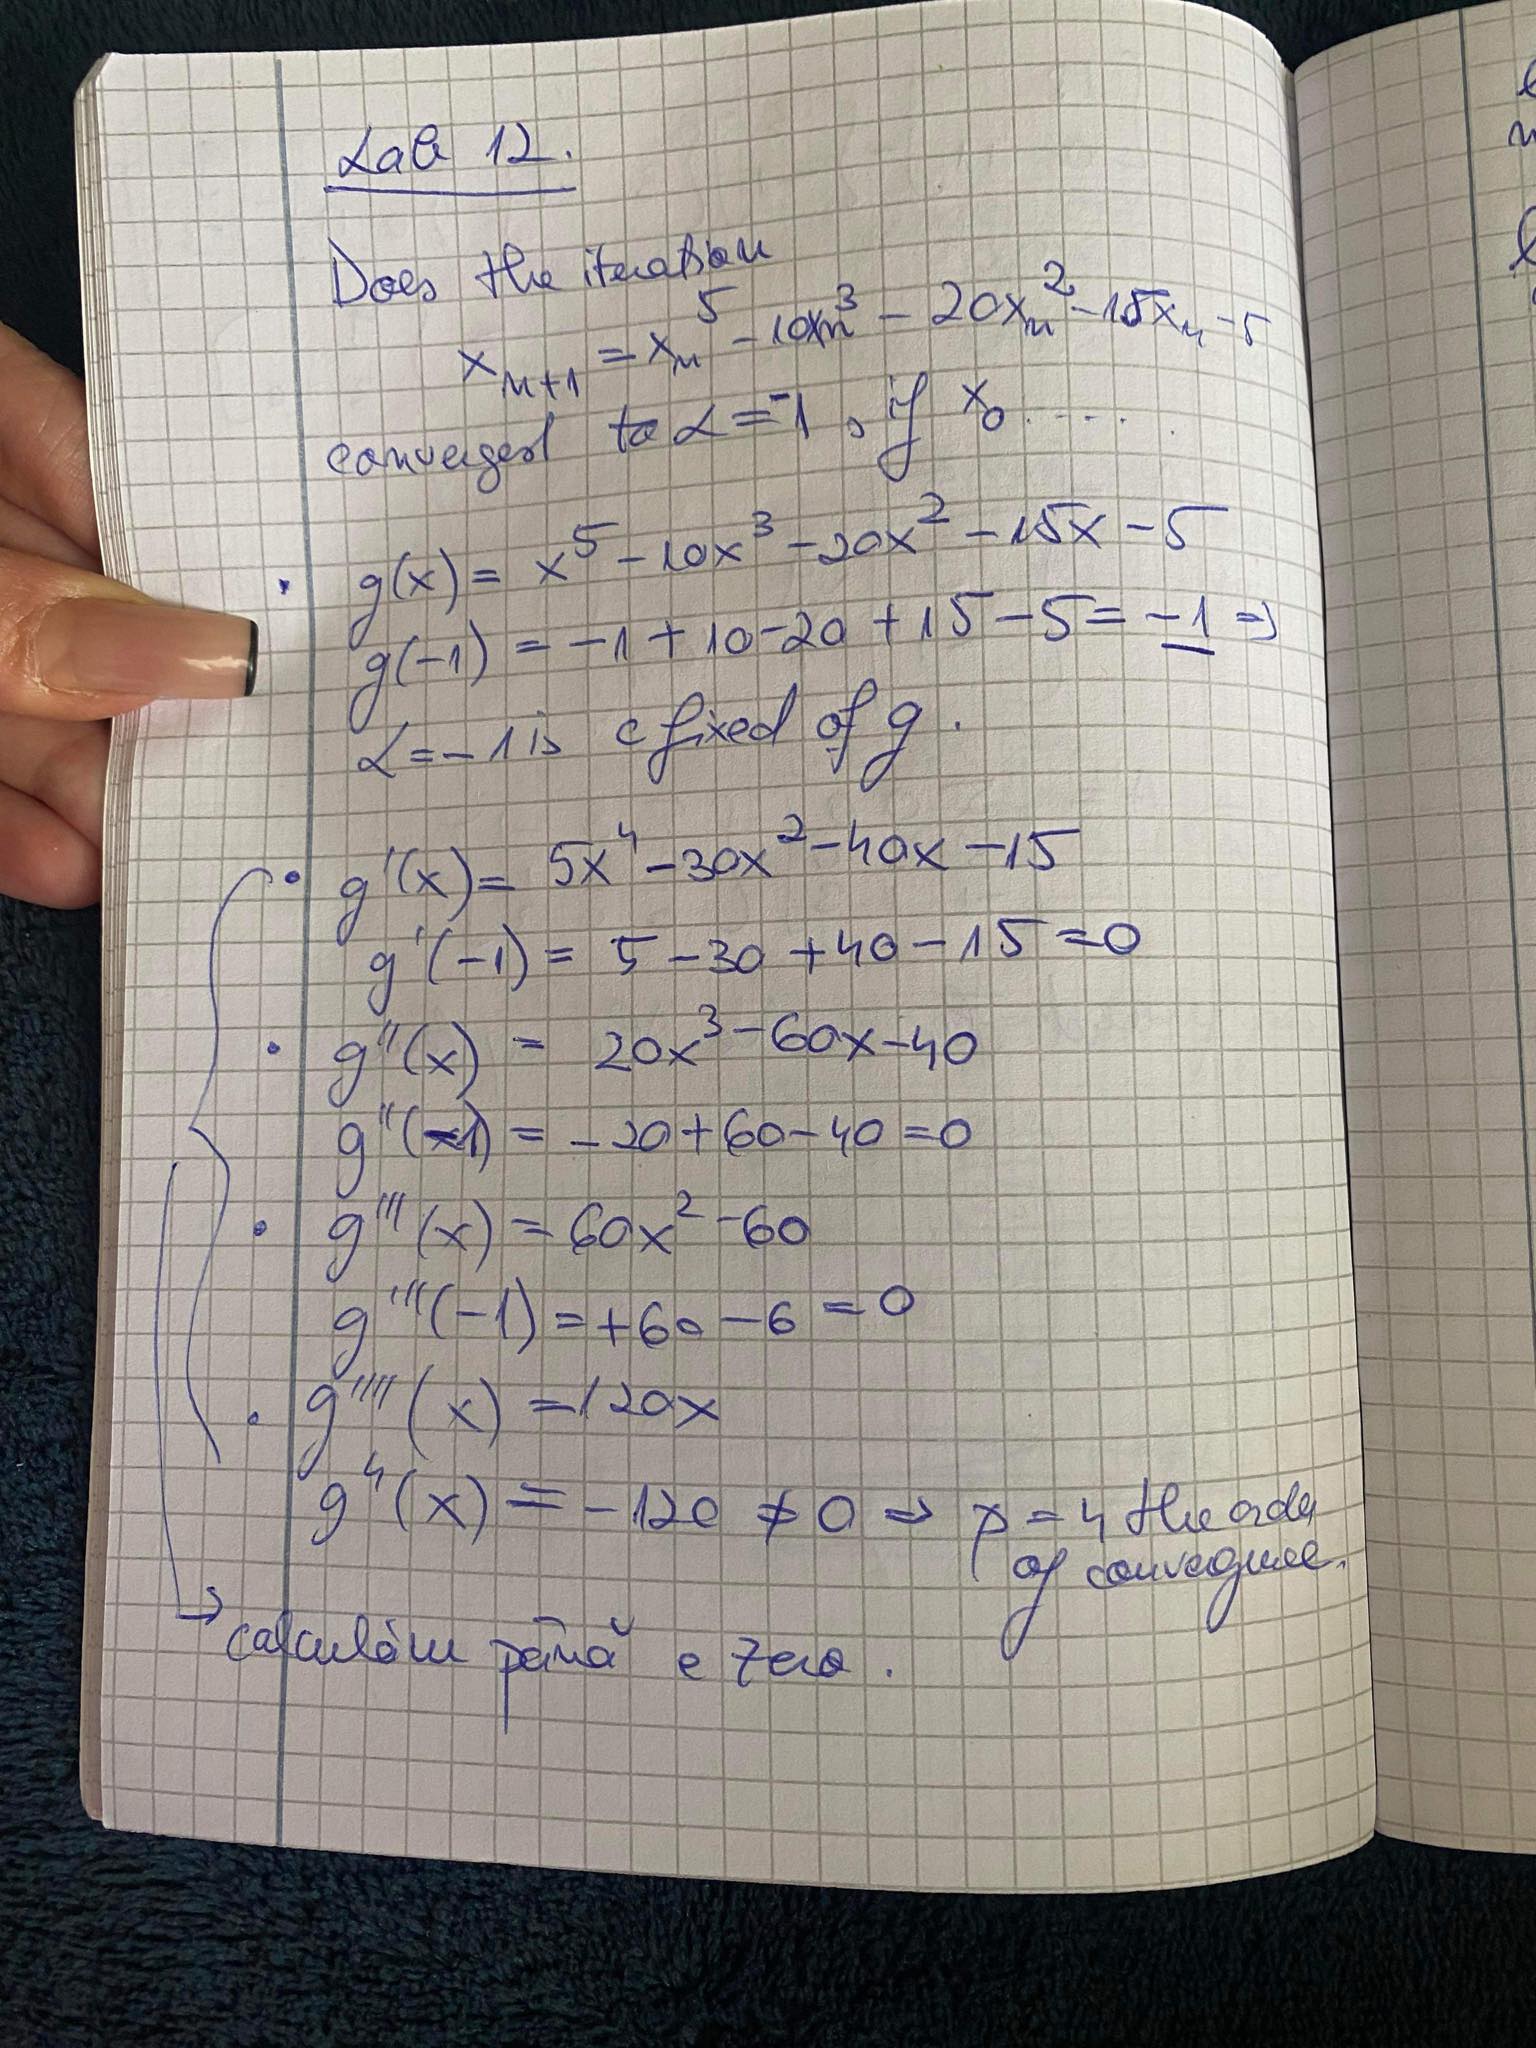 Lab 12.
Does the iteration
x_{n+1} = x_n^5 - 10x_n^3 - 20x_n^2 - 15x_n - 5
converges to α = -1, if x_0 .....
• g(x) = x^5 - 10x^3 - 20x^2 - 15x - 5
g(-1) = -1 + 10 - 20 + 15 - 5 = -1 ⇒
α = -1 is a fixed of g.
• g'(x) = 5x^4 - 30x^2 - 40x - 15
g'(-1) = 5 - 30 + 40 - 15 = 0
• g''(x) = 20x^3 - 60x - 40
g''(-1) = -20 + 60 - 40 = 0
• g'''(x) = 60x^2 - 60
g'''(-1) = +60 - 6 = 0
• g''''(x) = 120x
g^4(x) = -120 ≠ 0 ⇒ p = 4 the order
of convergence.
→ calculăm până e zero.